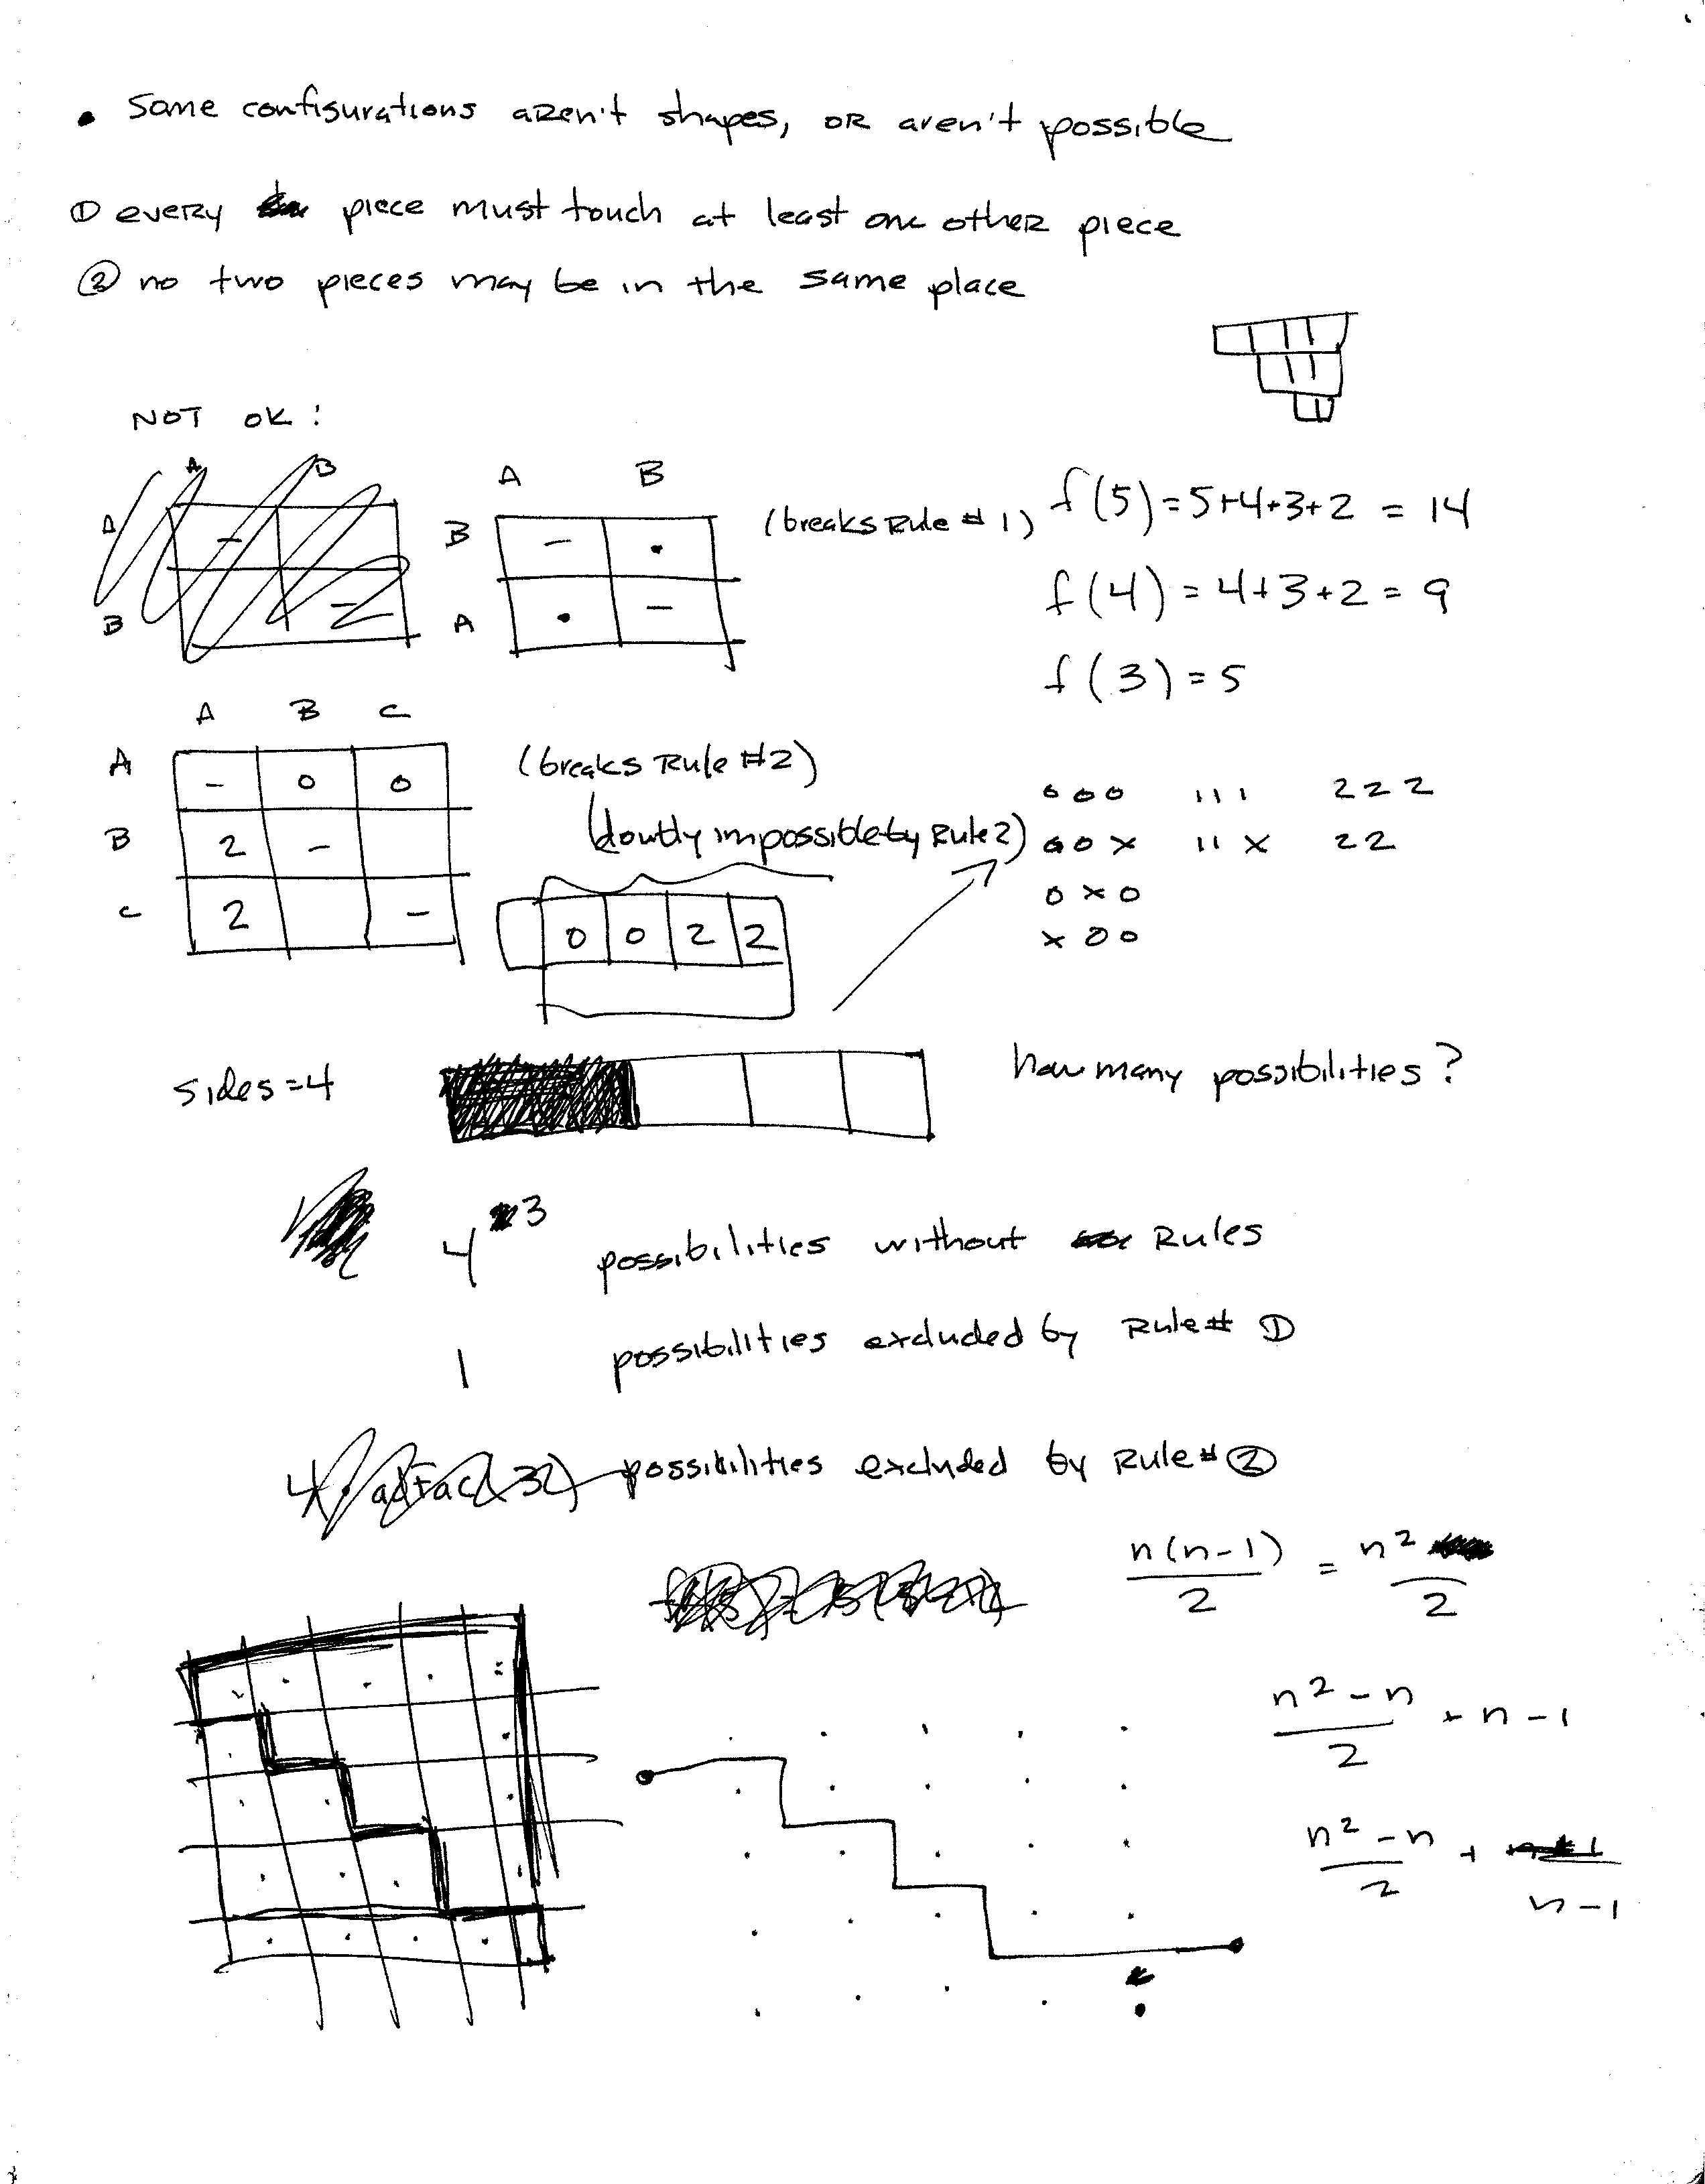 • Some configurations aren't shapes, or aren't possible
① every piece must touch at least one other piece
② no two pieces may be in the same place
NOT OK:
A B
A -
B -
A B
B - •
A • -
(breaks Rule # 1)
f(5) = 5+4+3+2 = 14
f(4) = 4+3+2 = 9
f(3) = 5
A B C
A - 0 0
B 2 -
C 2 -
(breaks Rule #2)
(doubly impossible by Rule 2)
0 0 2 2
000 111 222
00x 11x 22
0x0
x00
sides=4
how many possibilities?
4 3 possibilities without Rules
1 possibilities excluded by Rule # ①
possibilities excluded by Rule # ②
n(n-1)/2 = n²/2
(n²-n)/2 + n-1
(n²-n)/2 + n-1